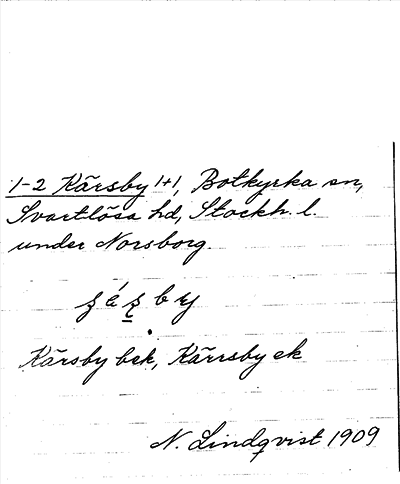 1-2 Kärsby 1+1, Botkyrka sn,
Svartlösa hd, Stockh. l.
under Norsborg.
Kärsby bek, Kärrsby ek
N. Lindqvist 1909